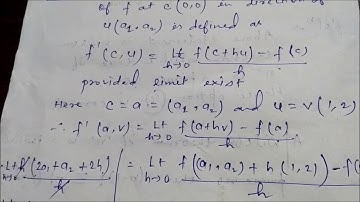 of f at c (0,0) in direction of
u(a1,a2) is defined as
f'(c,u) = Lt h→0 f(c+hu) - f(c) / h
provided limit exist
Here c = a = (a1,a2) and u = v(1,2)
∴ f'(a,v) = Lt h→0 f(a+hv) - f(a) / h
= Lt h→0 f((a1,a2) + h(1,2)) - f( / h
Lt h→0 h(2a1+a2+2h) / h